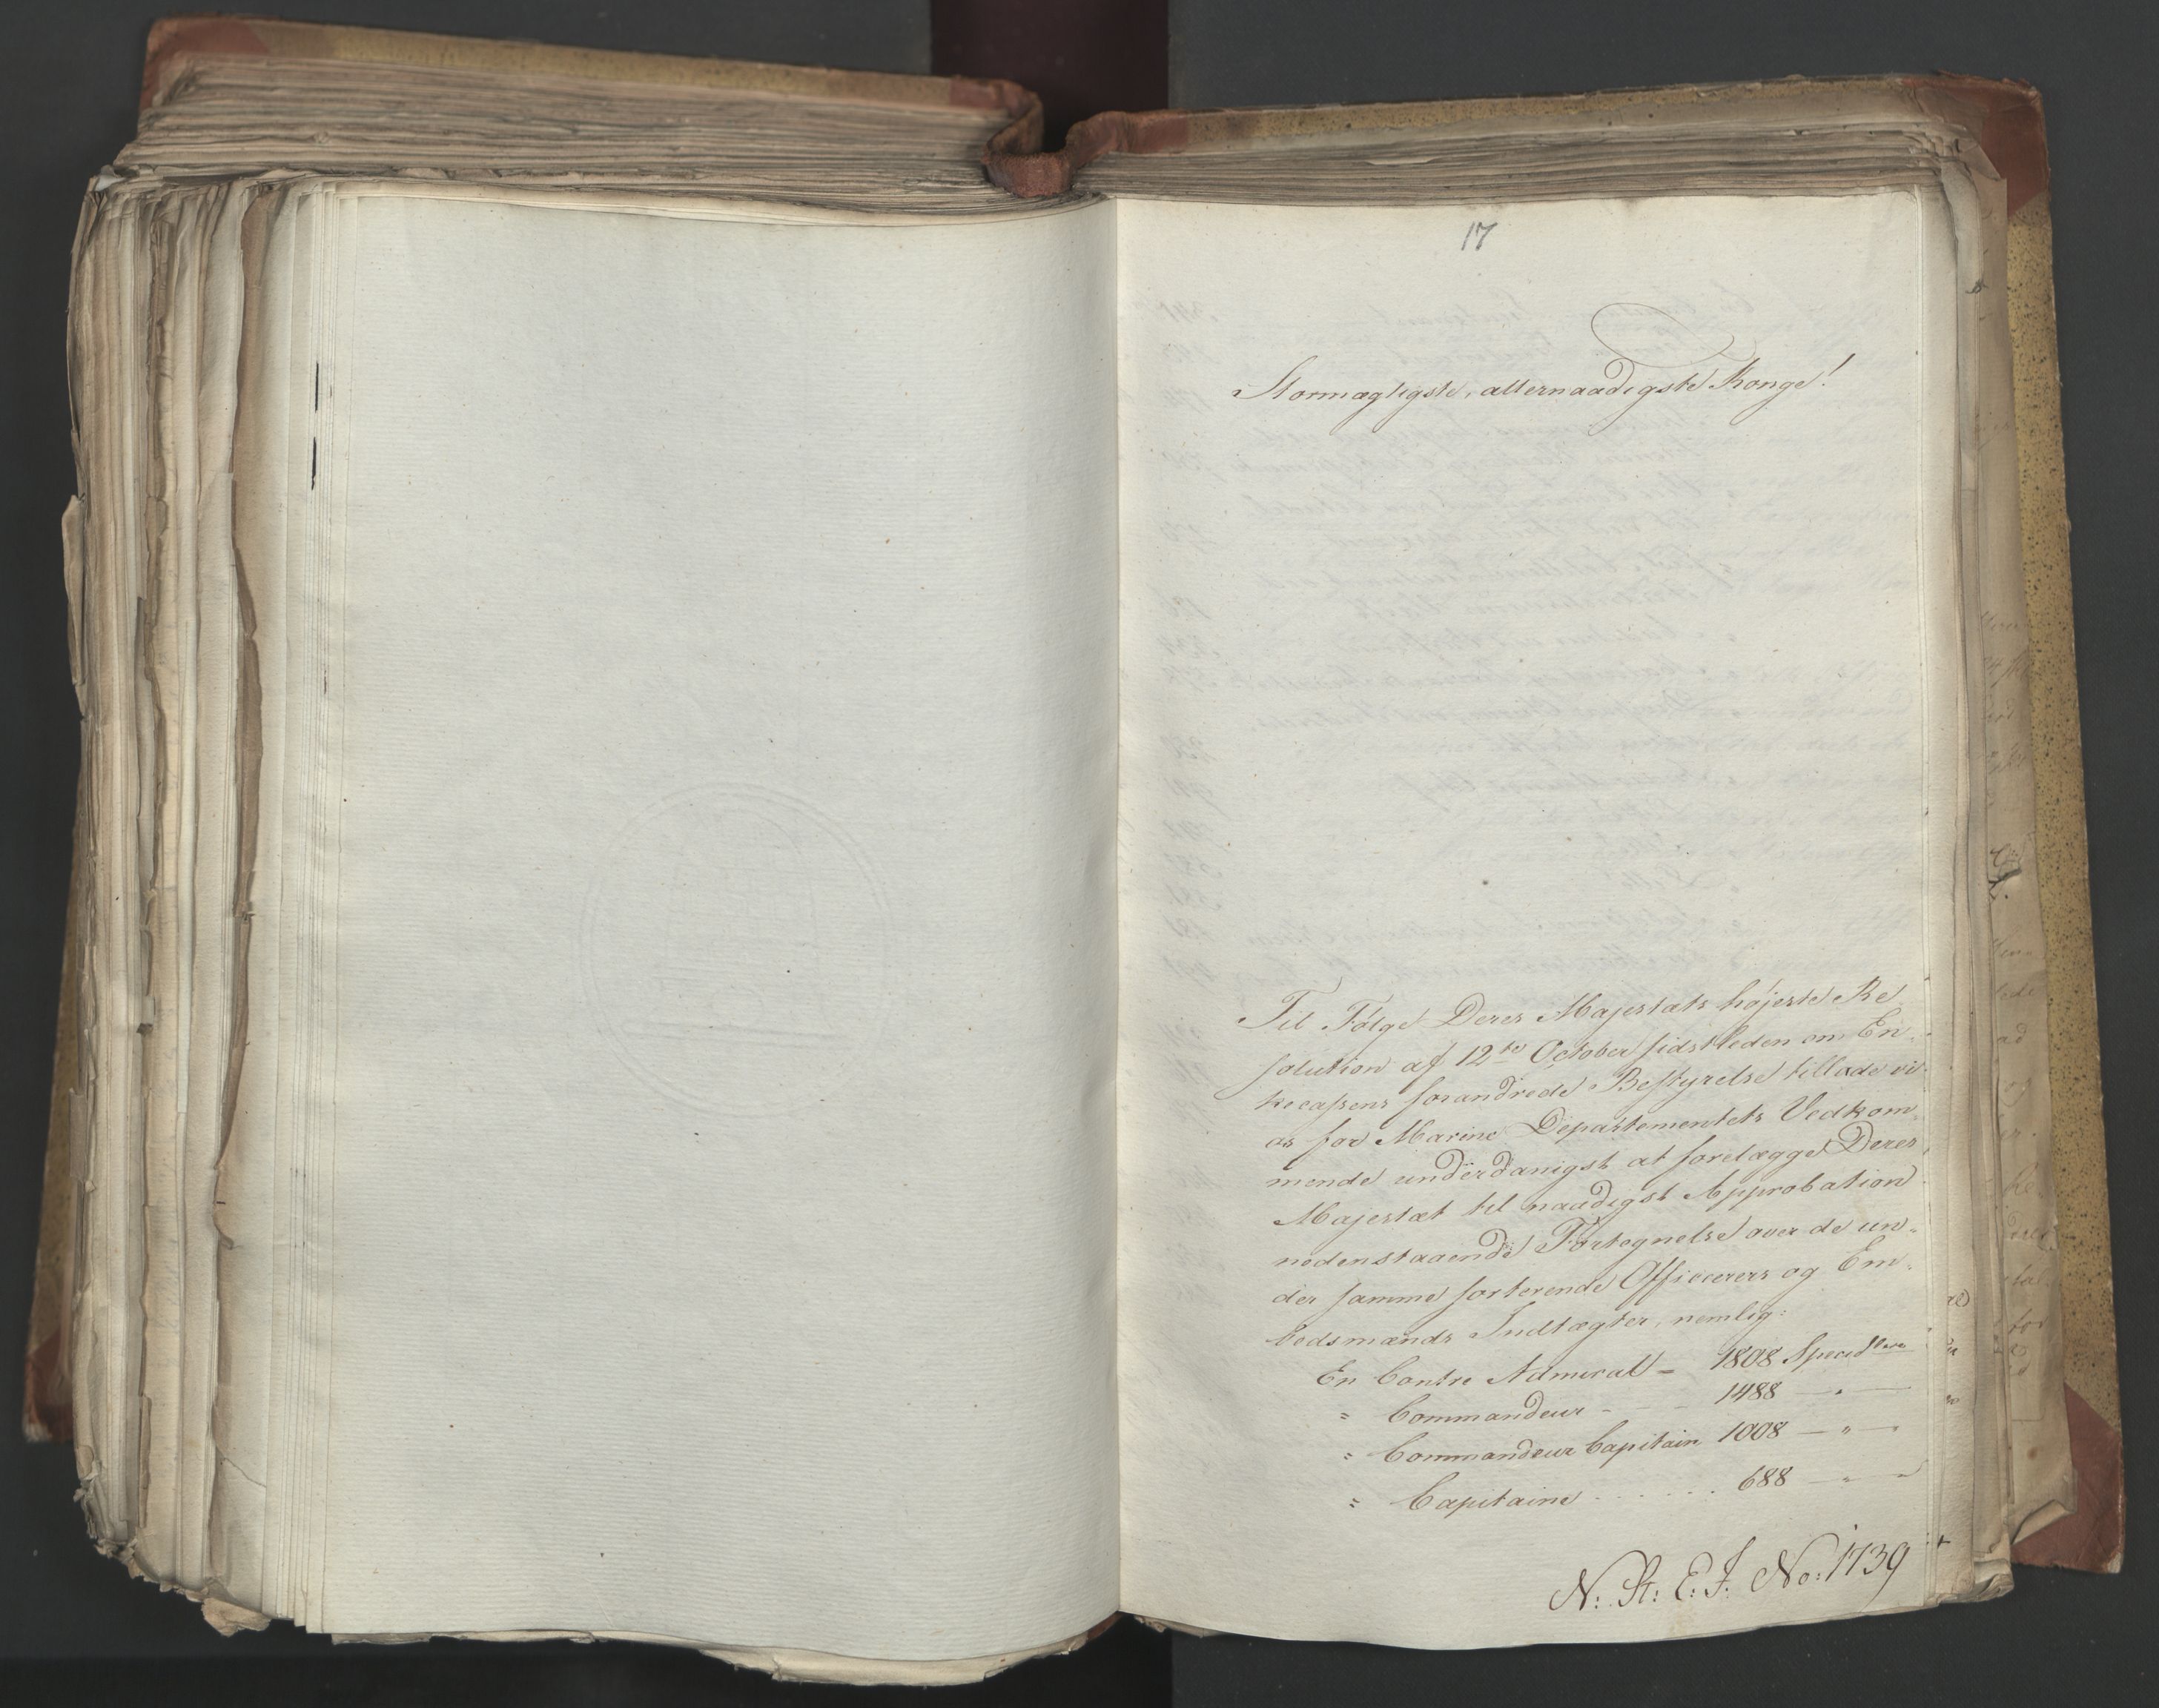 17
Stormægtigste, allernaadigste Konge!
Til Følge Deres Majestæts højeste Re
solution af 12te October sidstleden om En„
kecassens forandrede Bestyrelse tillade vi
os for Marine Departementets Vedkom„
mende underdanigst at forelægge Deres
Majestæt til naadigst Approbation
nedenstaaende Fortegnelse over de un„
der samme sorterende Officerers og Em„
bedsmænds Indtægter, nemlig:
En Contre Admiral – 1808 Specidlere
" Commandeur - - - 1488 — " —
" Commandeur Capitain 1008 — " —
" Capitaine . . . . . . 688 — " —
N: R: E: J: No: 1739